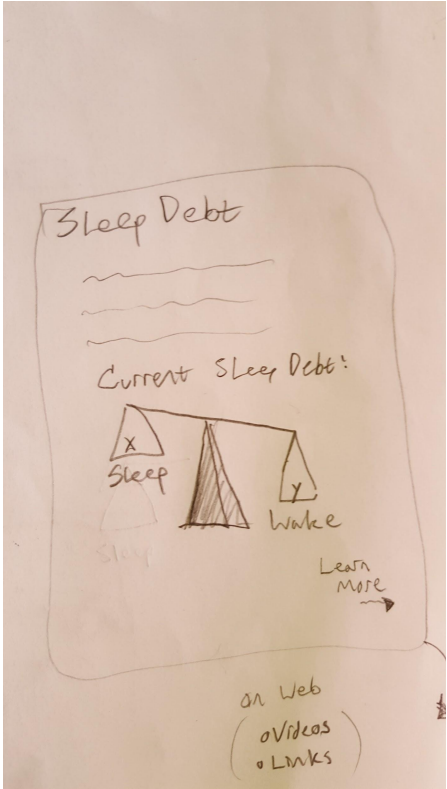 Sleep Debt
Current Sleep Debt:
X
Sleep
Y
Wake
Sleep
Learn
More
on Web
Videos
Links